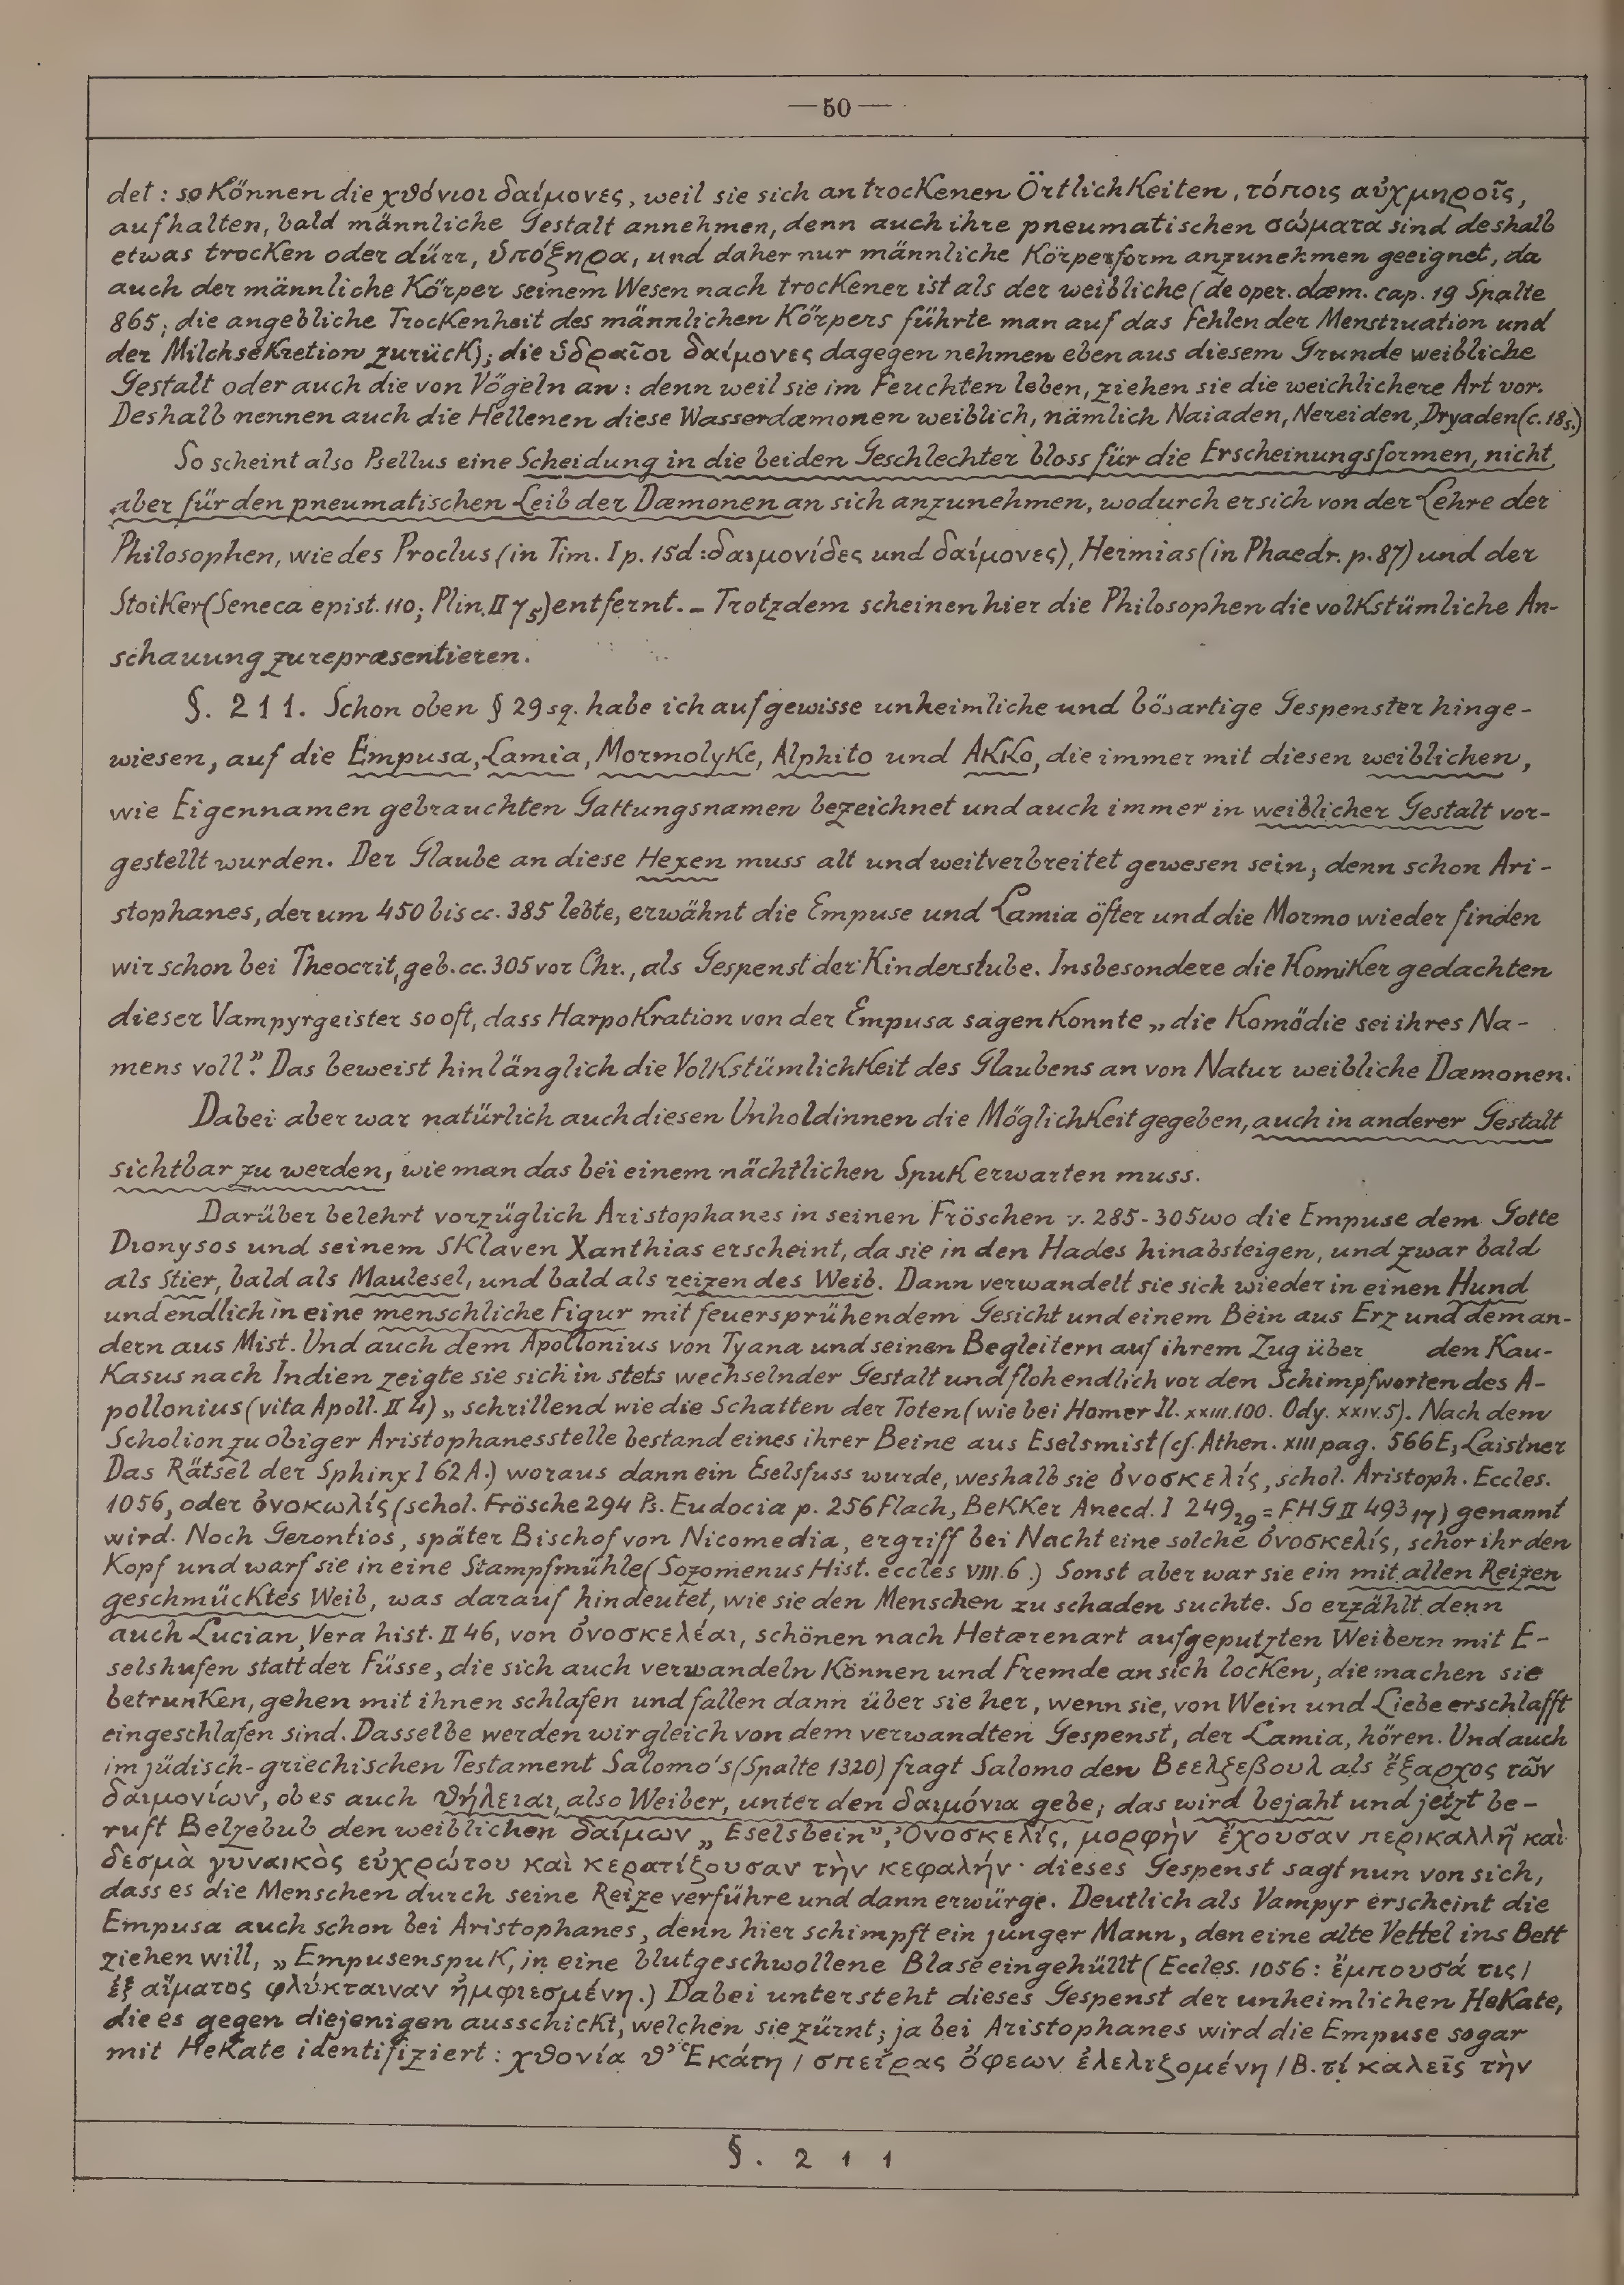 —50—
det: so können die χθόνιοι δαίμονες, weil sie sich an trockenen Örtlichkeiten, τόποις αὐχμηροῖς,
aufhalten, bald männliche Gestalt annehmen, denn auch ihre pneumatischen σώματα sind deshalb
etwas trocken oder dürr, ὑπόξηρα, und daher nur männliche Körperform anzunehmen geeignet, da
auch der männliche Körper seinem Wesen nach trockener ist als der weibliche (de oper. dæm. cap. 19 Spalte
865; die angebliche Trockenheit des männlichen Körpers führte man auf das Fehlen der Menstruation und
der Milchsekretion zurück); die ὑδραῖοι δαίμονες dagegen nehmen eben aus diesem Grunde weibliche
Gestalt oder auch die von Vögeln an: denn weil sie im Feuchten leben, ziehen sie die weichlichere Art vor.
Deshalb nennen auch die Hellenen diese Wasserdæmonen weiblich, nämlich Naiaden, Nereiden, Dryaden (c. 18 s.)
So scheint also Psellus eine Scheidung in die beiden Geschlechter bloss für die Erscheinungsformen, nicht
aber für den pneumatischen Leib der Dæmonen an sich anzunehmen, wodurch er sich von der Lehre der
Philosophen, wie des Proclus (in Tim. I p. 15d: δαιμονίδες und δαίμονες), Hermias (in Phaedr. p. 87) und der
Stoiker (Seneca epist. 110; Plin. II 7 5) entfernt. – Trotzdem scheinen hier die Philosophen die volkstümliche An-
schauung zu repræsentieren.
§. 211. Schon oben § 29 sq. habe ich auf gewisse unheimliche und bösartige Gespenster hinge-
wiesen, auf die Empusa, Lamia, Mormolyke, Alphito und Akko, die immer mit diesen weiblichen,
wie Eigennamen gebrauchten Gattungsnamen bezeichnet und auch immer in weiblicher Gestalt vor-
gestellt wurden. Der Glaube an diese Hexen muss alt und weitverbreitet gewesen sein; denn schon Ari-
stophanes, der um 450 bis cc. 385 lebte, erwähnt die Empuse und Lamia öfter und die Mormo wieder finden
wir schon bei Theocrit, geb. cc. 305 vor Chr., als Gespenst der Kinderstube. Insbesondere die Komiker gedachten
dieser Vampyrgeister so oft, dass Harpokration von der Empusa sagen konnte „die Komödie sei ihres Na-
mens voll". Das beweist hinlänglich die Volkstümlichkeit des Glaubens an von Natur weibliche Dæmonen.
Dabei aber war natürlich auch diesen Unholdinnen die Möglichkeit gegeben, auch in anderer Gestalt
sichtbar zu werden, wie man das bei einem nächtlichen Spuk erwarten muss.
Darüber belehrt vorzüglich Aristophanes in seinen Fröschen v. 285-305 wo die Empuse dem Gotte
Dionysos und seinem Sklaven Xanthias erscheint, da sie in den Hades hinabsteigen, und zwar bald
als Stier, bald als Maulesel, und bald als reizendes Weib. Dann verwandelt sie sich wieder in einen Hund
und endlich in eine menschliche Figur mit feuersprühendem Gesicht und einem Bein aus Erz und dem an-
dern aus Mist. Und auch dem Apollonius von Tyana und seinen Begleitern auf ihrem Zug über den Kau-
kasus nach Indien zeigte sie sich in stets wechselnder Gestalt und floh endlich vor den Schimpfworten des A-
pollonius (vita Apoll. II 4) „schrillend wie die Schatten der Toten (wie bei Homer Il. XXIII. 100. Ody. XXIV. 5). Nach dem
Scholion zu obiger Aristophanesstelle bestand eines ihrer Beine aus Eselsmist (cf. Athen. XIII pag. 566E; Laistner
Das Rätsel der Sphinx I 62 A.) woraus dann ein Eselsfuss wurde, weshalb sie ὀνοσκελίς, schol. Aristoph. Eccles.
1056, oder ὀνοκωλίς (schol. Frösche 294 Ps. Eudocia p. 256 Flach, Bekker Anecd. I 249 29 = FHG II 493 17) genannt
wird. Noch Gerontios, später Bischof von Nicomedia, ergriff bei Nacht eine solche ὀνοσκελίς, schor ihr den
Kopf und warf sie in eine Stampfmühle (Sozomenus Hist. eccles VIII. 6.) Sonst aber war sie ein mit allen Reizen
geschmücktes Weib, was darauf hindeutet, wie sie den Menschen zu schaden suchte. So erzählt denn
auch Lucian, Vera hist. II 46, von ὀνοσκελέαι, schönen nach Hetærenart aufgeputzten Weibern mit E-
selshufen statt der Füsse, die sich auch verwandeln können und Fremde an sich locken; die machen sie
betrunken, gehen mit ihnen schlafen und fallen dann über sie her, wenn sie, von Wein und Liebe erschlafft
eingeschlafen sind. Dasselbe werden wir gleich von dem verwandten Gespenst, der Lamia, hören. Und auch
im jüdisch-griechischen Testament Salomo's (Spalte 1320) fragt Salomo den Βεελζεβουλ als ἔξαρχος τῶν
δαιμονίων, ob es auch θήλειαι, also Weiber, unter den δαιμόνια gebe; das wird bejaht und jetzt be-
ruft Belzebub den weiblichen δαίμων „Eselsbein", Ὀνοσκελίς, μορφὴν ἔχουσαν περικαλλῆ καὶ
δεσμὰ γυναικὸς εὐχρώτου καὶ κερατίζουσαν τὴν κεφαλήν· dieses Gespenst sagt nun von sich,
dass es die Menschen durch seine Reize verführe und dann erwürge. Deutlich als Vampyr erscheint die
Empusa auch schon bei Aristophanes, denn hier schimpft ein junger Mann, den eine alte Vettel ins Bett
ziehen will, „Empusenspuk, in eine blutgeschwollene Blase eingehüllt (Eccles. 1056: ἔμπουσά τις /
ἐξ αἵματος φλύκταιναν ἠμφιεσμένη.) Dabei untersteht dieses Gespenst der unheimlichen Hekate,
die es gegen diejenigen ausschickt, welchen sie zürnt; ja bei Aristophanes wird die Empuse sogar
mit Hekate identifiziert: χθονία θ' Ἑκάτη / σπείρας ὄφεων ἐλελιζομένη / B. τί καλεῖς τὴν
§. 211